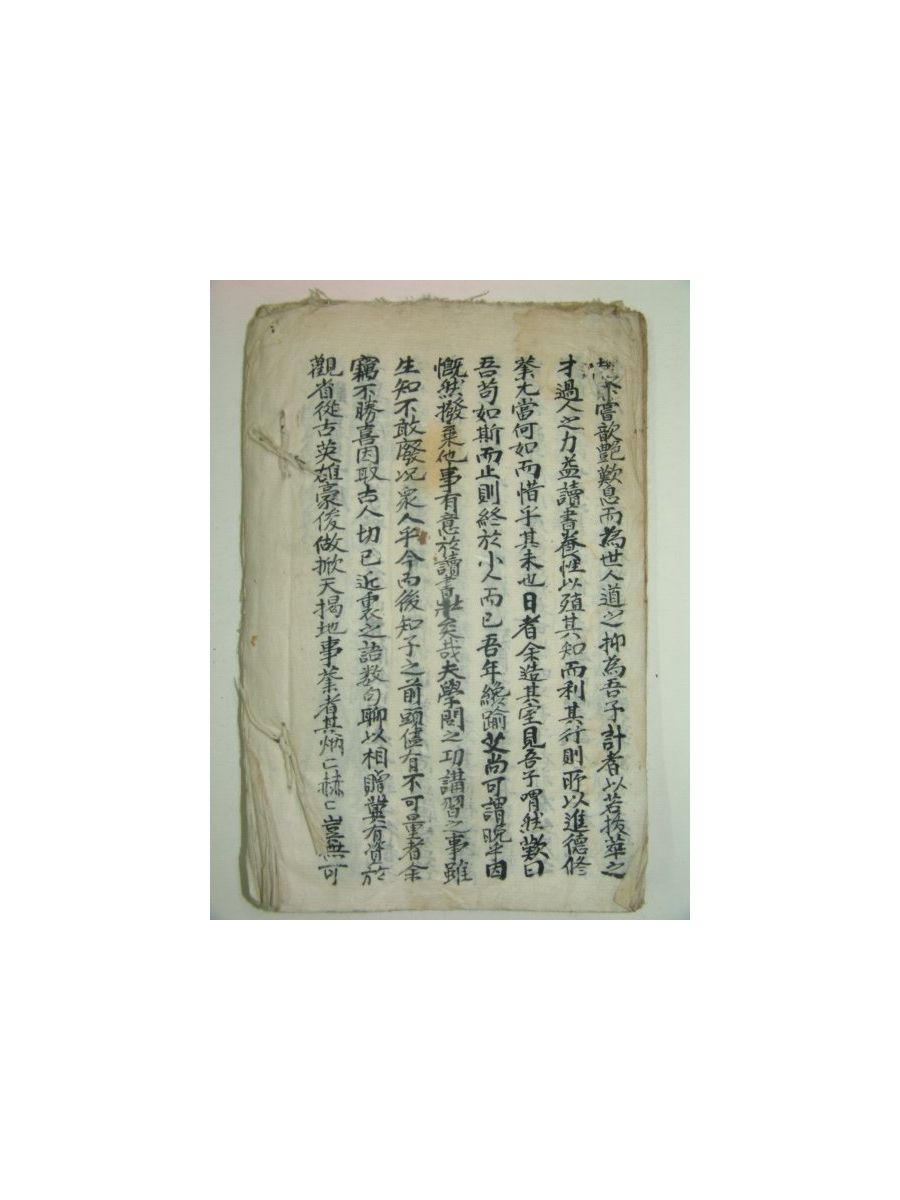 嘗歆艶歎息而為世人道之抑為吾子計者以若拔萃之
才過人之力益讀書養性以殖其知而利其行則所以進德修
業尤當何如而惜乎其未也日者余造其室見吾子喟然歎曰
吾苟如斯而止則終於小人而已吾年纔踰艾尚可謂晩乎因
慨然撥棄他事有意於讀書壯矣哉夫學問之功講習之事雖
生知不敢廢况衆人乎今而後知子之前頭儘有不可量者余
竊不勝喜因取古人切已近裏之語数句聊以相贈冀有資於
觀省從古英雄豪俊做掀天揭地事業者其炳〻赫〻豈無可